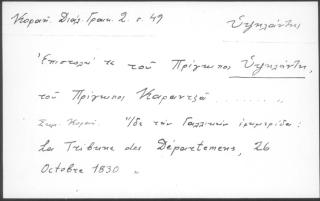 Κοραή. Διάλ. Γραικ. 2. σ. 49 Ὑψηλάντης
Ἐπιστολαί τε τοῦ Πρίγκιπος Ὑψηλάντη,
τοῦ Πρίγκιπος Καραντζᾶ . . . . . . . . "
Σημ. Κοραῆ. Ἴδε τῶν Γαλλικῶν ἐφημερίδα:
La Tribune des Départemens, 26
Octobre 1830 "